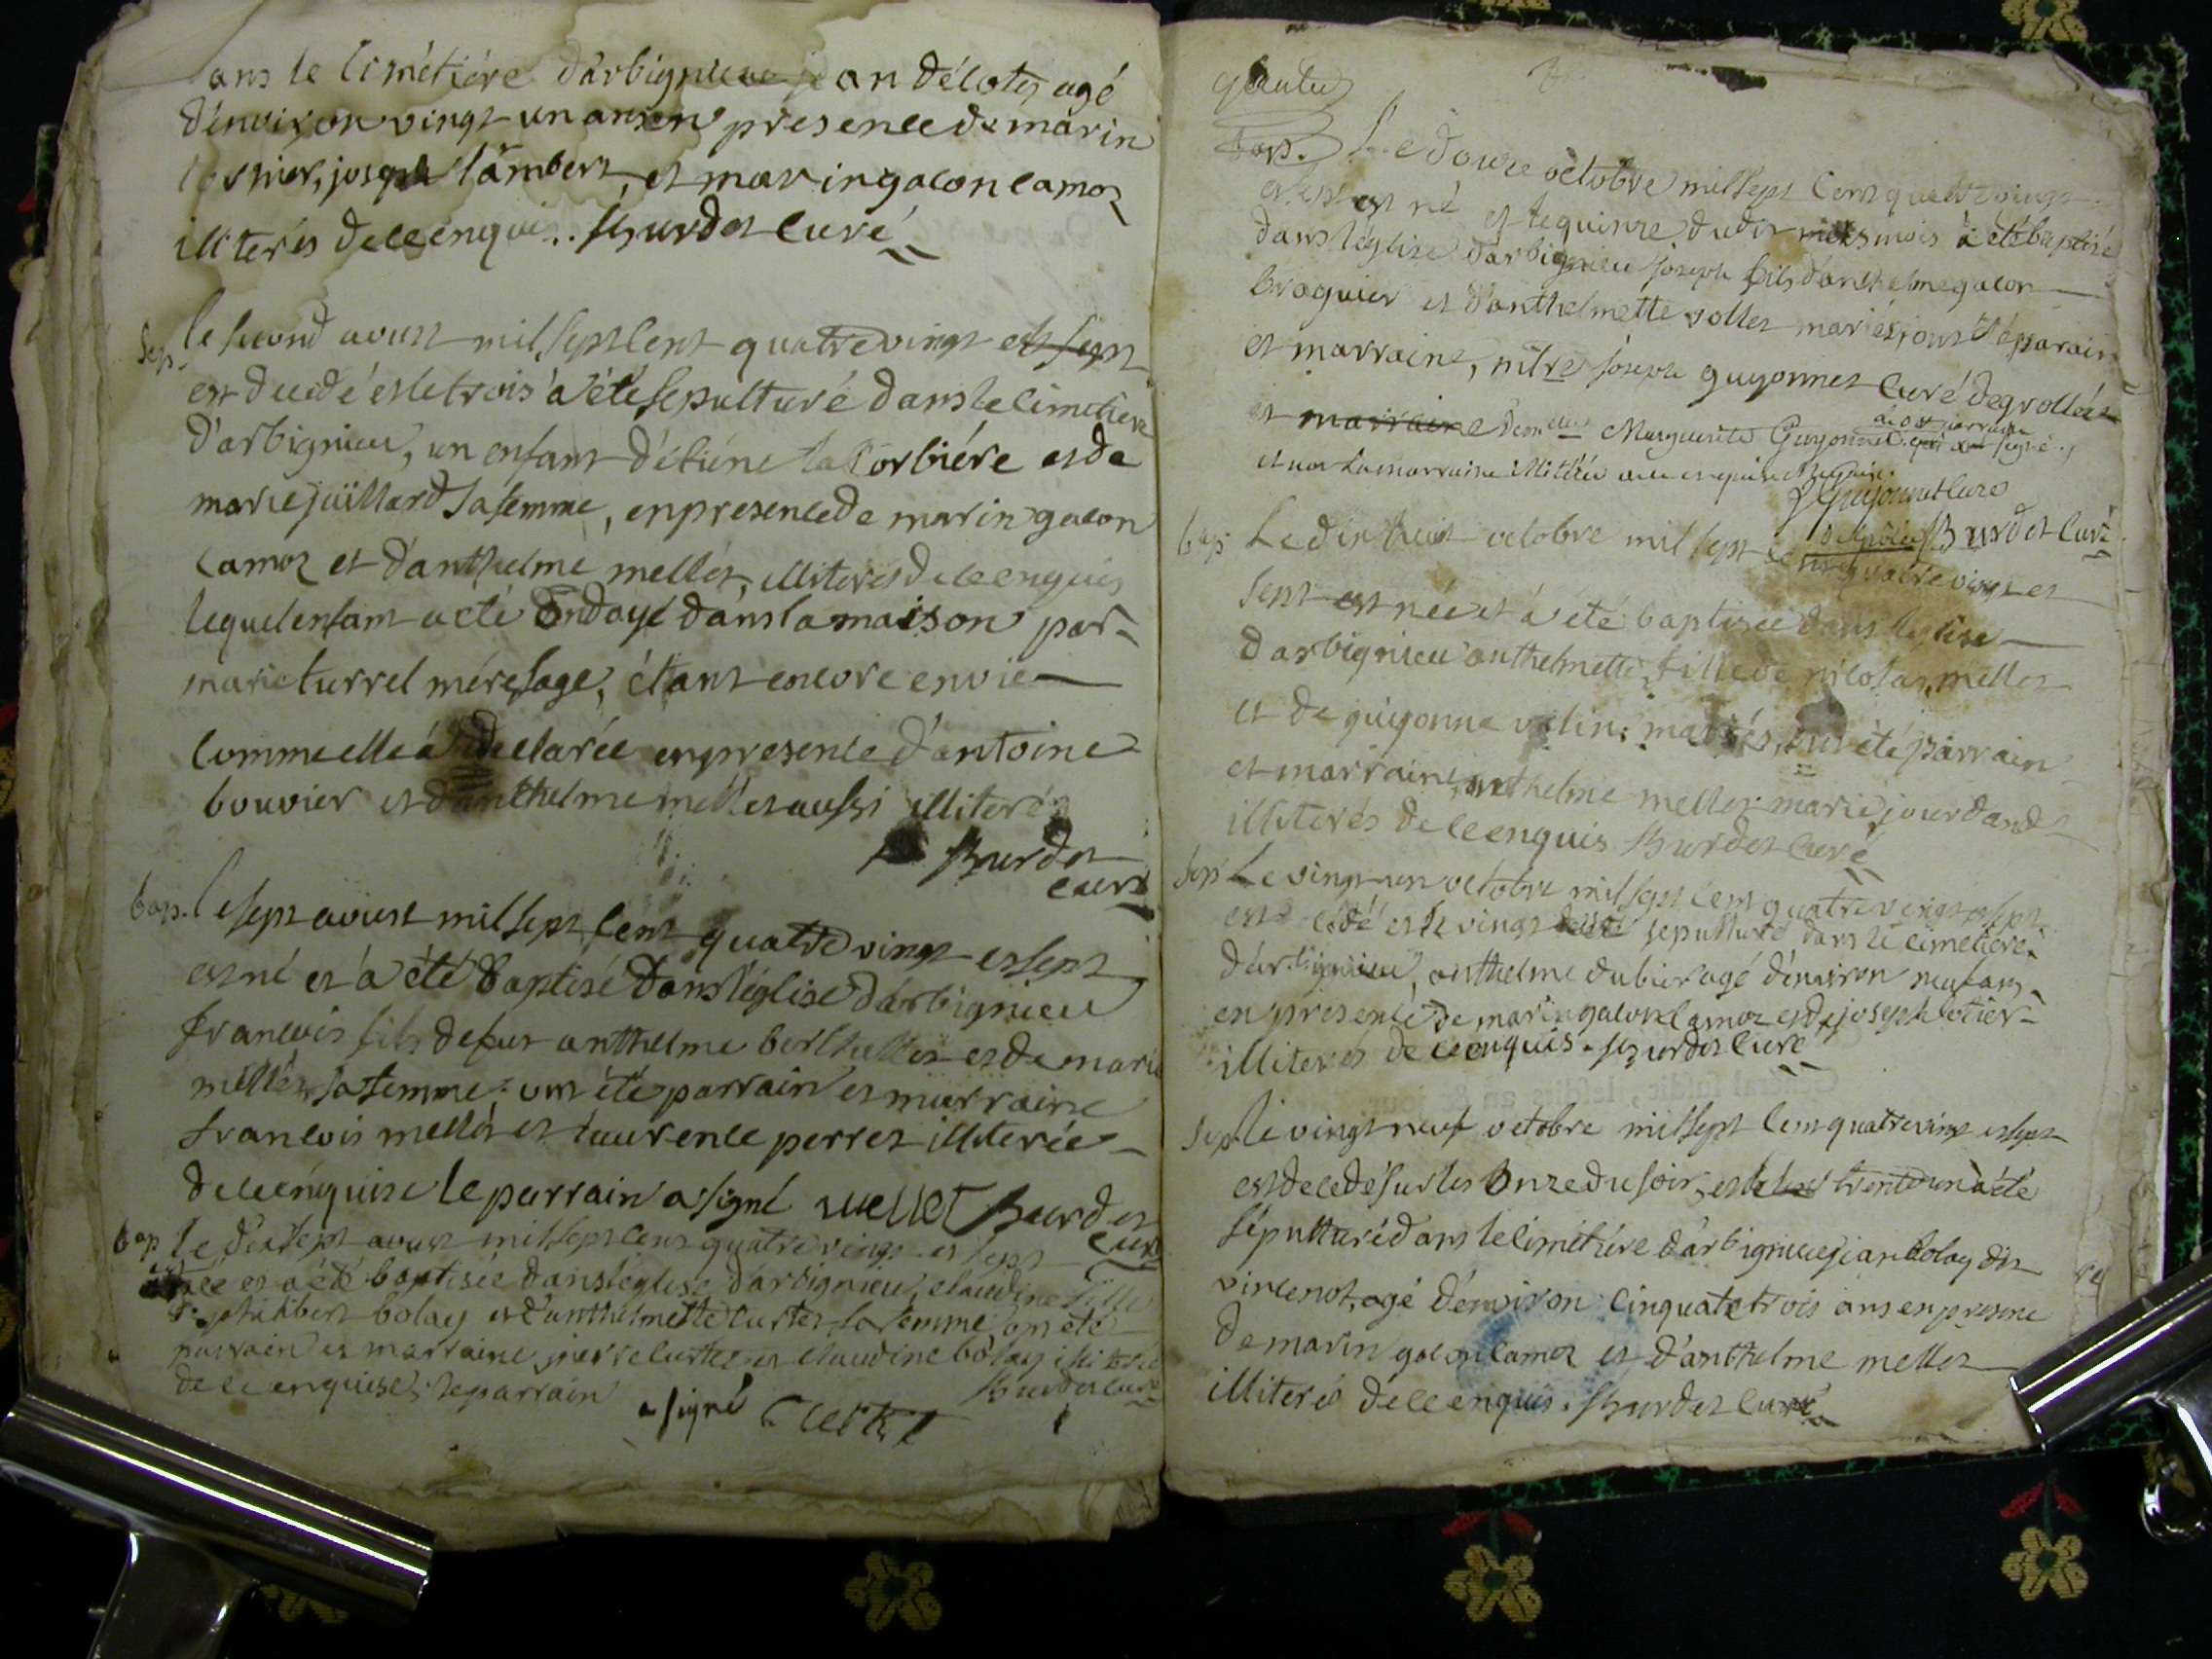 ans le cimétiére d'arbignieu jean délotz agé
d'environ vingt un ans en presence de marin
joseph lambert, et marin gacon camoz
illiterés de ce enquis. Burdet curé
sep. le second aoust mil sept cent quatre vingt et sept
est decedé et le trois à été sepulturé dans le cimetiere
d'arbignieu, un enfant d'étiéne la Corbiére et de
marie juillard sa femme, en presence de marin gacon
camoz et d'anthelme mellet, illiterés de ce enquis
lequel enfant a eté ondoyé dans la maison par
marie turrel mére sage, étant encore en vie
comme elle a declarée en presence d'antoine
bouvier et d'anthelme mellet aussi illiterés
Burdet
curé
bap. le sept aoust mil sept cent quatre vingt et sept
est né et à été baptisé dans l'église d'arbignieu
francois fils de feu anthelme berthellet et de marie
mellet sa femme: ont été parrain et marraine
francois mellet et laurence perret illiterée
de ce enquise le parrain a signé mellet Burdet
curé
bap le dix sept aoust mil sept cent quatre vingt et sept
est née et a été baptisée dans l'église d'arbignieu, claudine fille
de philibert bolay et d'anthelmette curtet sa femme, ont été
parrain et marraine pierre curtet et claudine bolay illiterée
de ce enquise, le parrain a signé Curtet Burdet curé
bap. Le douze octobre mil sept cent quatre vingt
et sept est né et le quinze dudit mois à été baptisé
dans l'église d'arbignieu joseph fils d'anthelme gacon
braquier et d'anthelmette vollet mariés, ont été parain
et marraine, mitre joseph guyonnet curé de grollée
et marraine demelle Marguerite Guyonnet qui ont signé.
le parrain
et non la marraine illitérée de ce enquise et requise.
J Guyonnet curé
Burdet curé
bap. Le dix huit octobre mil sept cent quatre vingt et
sept est née et à été baptisée dans l'église
d'arbignieu anthelmette, fille de nicolas mellet
et de guigonne velin: mariés, ont été parrain
et marraine, anthelme mellet marie jourdand
illiterés de ce enquis Burdet curé
sep Le vingt un octobre mil sept cent quatre vingt et sept
est decedé et le vingt deux sepulturé dans le cimetiere
d'arbignieu, anthelme dubier agé d'environ neuf ans
en presence de marin gacon camoz et de joseph
illiterés de ce enquis. Burdet curé
sep le vingt neuf octobre mil sept cent quatre vingt et sept
est decedé sur les onze du soir, et le trente un à eté
sépulturé dans le cimétiére d'arbignieu jean bolay dit
vincenot, agé d'environ cinquante trois ans en presence
de marin gacon camoz et d'anthelme mellet
illiterés de ce enquis. Burdet curé